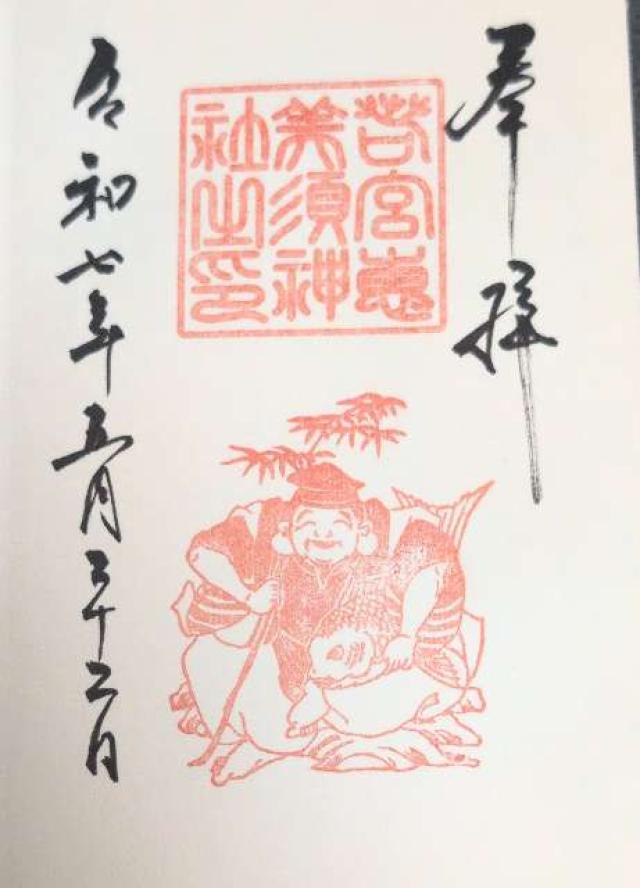 奉拝
若宮恵
美須神
社之印
令和七年五月二十二日